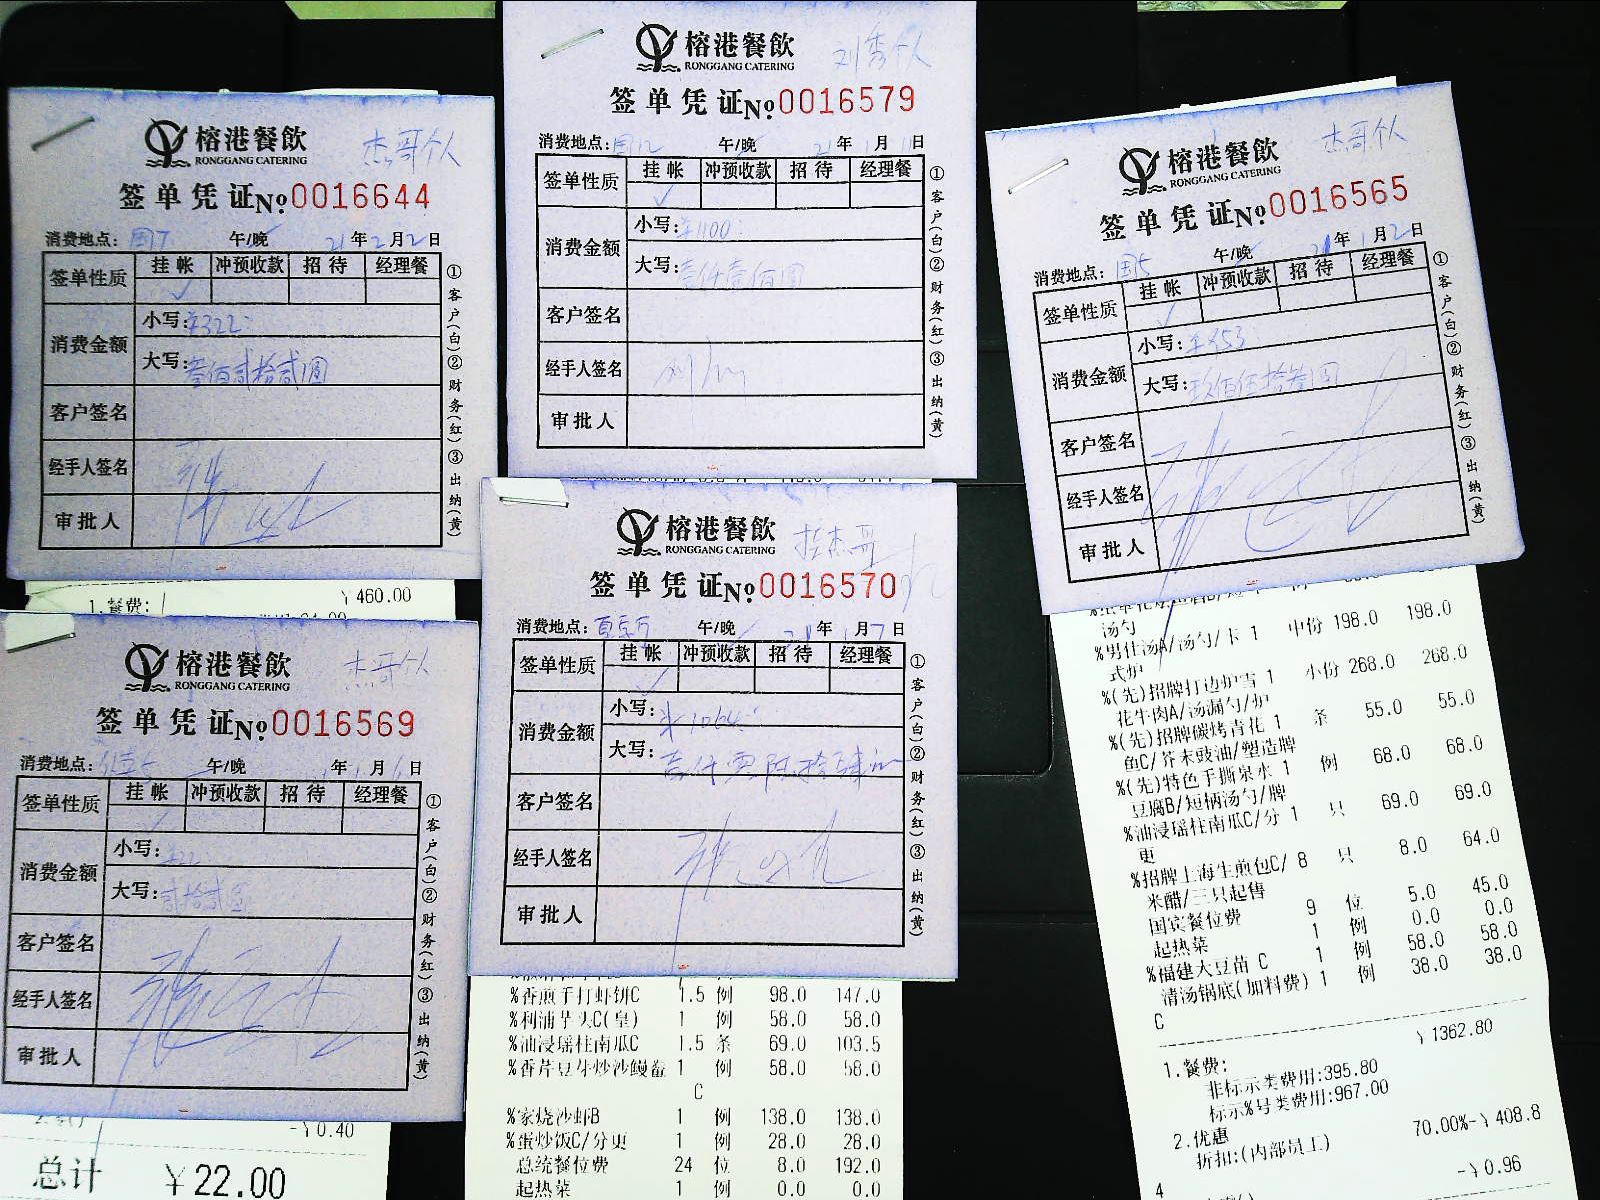 榕港餐飲
RONGGANG CATERING
杰哥个人
签单凭证№0016644
消费地点: 国7 午/晚 21年2月2日
签单性质 挂帐 冲预收款 招待 经理餐
消费金额 小写: ¥322
大写:
客户签名
经手人签名
审批人
①客户(白)②财务(红)③出纳(黄)
1.餐费: ¥460.00
榕港餐飲
RONGGANG CATERING
签单凭证№0016579
消费地点: 国12 午/晚 21年1月11日
签单性质 挂帐 冲预收款 招待 经理餐
消费金额 小写: ¥1100
大写: 壹仟壹佰圆
客户签名
经手人签名
审批人
①客户(白)②财务(红)③出纳(黄)
榕港餐飲
RONGGANG CATERING
杰哥个人
签单凭证№0016565
消费地点: 国5 午/晚 21年1月2日
签单性质 挂帐 冲预收款 招待 经理餐
消费金额 小写: ¥953
大写: 玖佰伍拾叁圆
客户签名
经手人签名
审批人
①客户(白)②财务(红)③出纳(黄)
汤勺
%男仕汤A/汤勺/卡 1 中份 198.0 198.0
式炉
%(先)招牌打边炉雪 1 小份 268.0 268.0
花牛肉A/汤漏勺/炉
%(先)招牌碳烤青花 1 条 55.0 55.0
鱼C/芥末豉油/塑造牌
%(先)特色手撕泉水 1 例 68.0 68.0
豆腐B/短柄汤勺/牌
%油浸瑶柱南瓜C/分 1 只 69.0 69.0
更
%招牌上海生煎包C/ 8 只 8.0 64.0
米醋/三只起售
国宾餐位费 9 位 5.0 45.0
起热菜 1 例 0.0 0.0
%福建大豆苗 C 1 例 58.0 58.0
清汤锅底(加料费) 1 例 38.0 38.0
C
1.餐费: ¥1362.80
非标示类费用:395.80
标示%号类费用:967.00
2.优惠
折扣:(内部员工) 70.00%-¥408.8
-¥0.96
榕港餐飲
RONGGANG CATERING
杰哥个人
签单凭证№0016569
消费地点: 午/晚 年1月6日
签单性质 挂帐 冲预收款 招待 经理餐
消费金额 小写: ¥22
大写: 贰拾贰圆
客户签名
经手人签名
审批人
①客户(白)②财务(红)③出纳(黄)
-¥0.40
总计 ¥22.00
榕港餐飲
RONGGANG CATERING
签单凭证№0016570
消费地点: 午/晚 21年1月7日
签单性质 挂帐 冲预收款 招待 经理餐
消费金额 小写: ¥1064
大写:
客户签名
经手人签名
审批人
①客户(白)②财务(红)③出纳(黄)
%香煎手打虾饼C 1.5 例 98.0 147.0
%利浦芋头C(皇) 1 例 58.0 58.0
%油浸瑶柱南瓜C 1.5 条 69.0 103.5
%香芹豆芽炒沙鳗鲞 1 例 58.0 58.0
C
%家烧沙虾B 1 例 138.0 138.0
%蛋炒饭C/分更 1 例 28.0 28.0
总统餐位费 24 位 8.0 192.0
起热菜 1 例 0.0 0.0